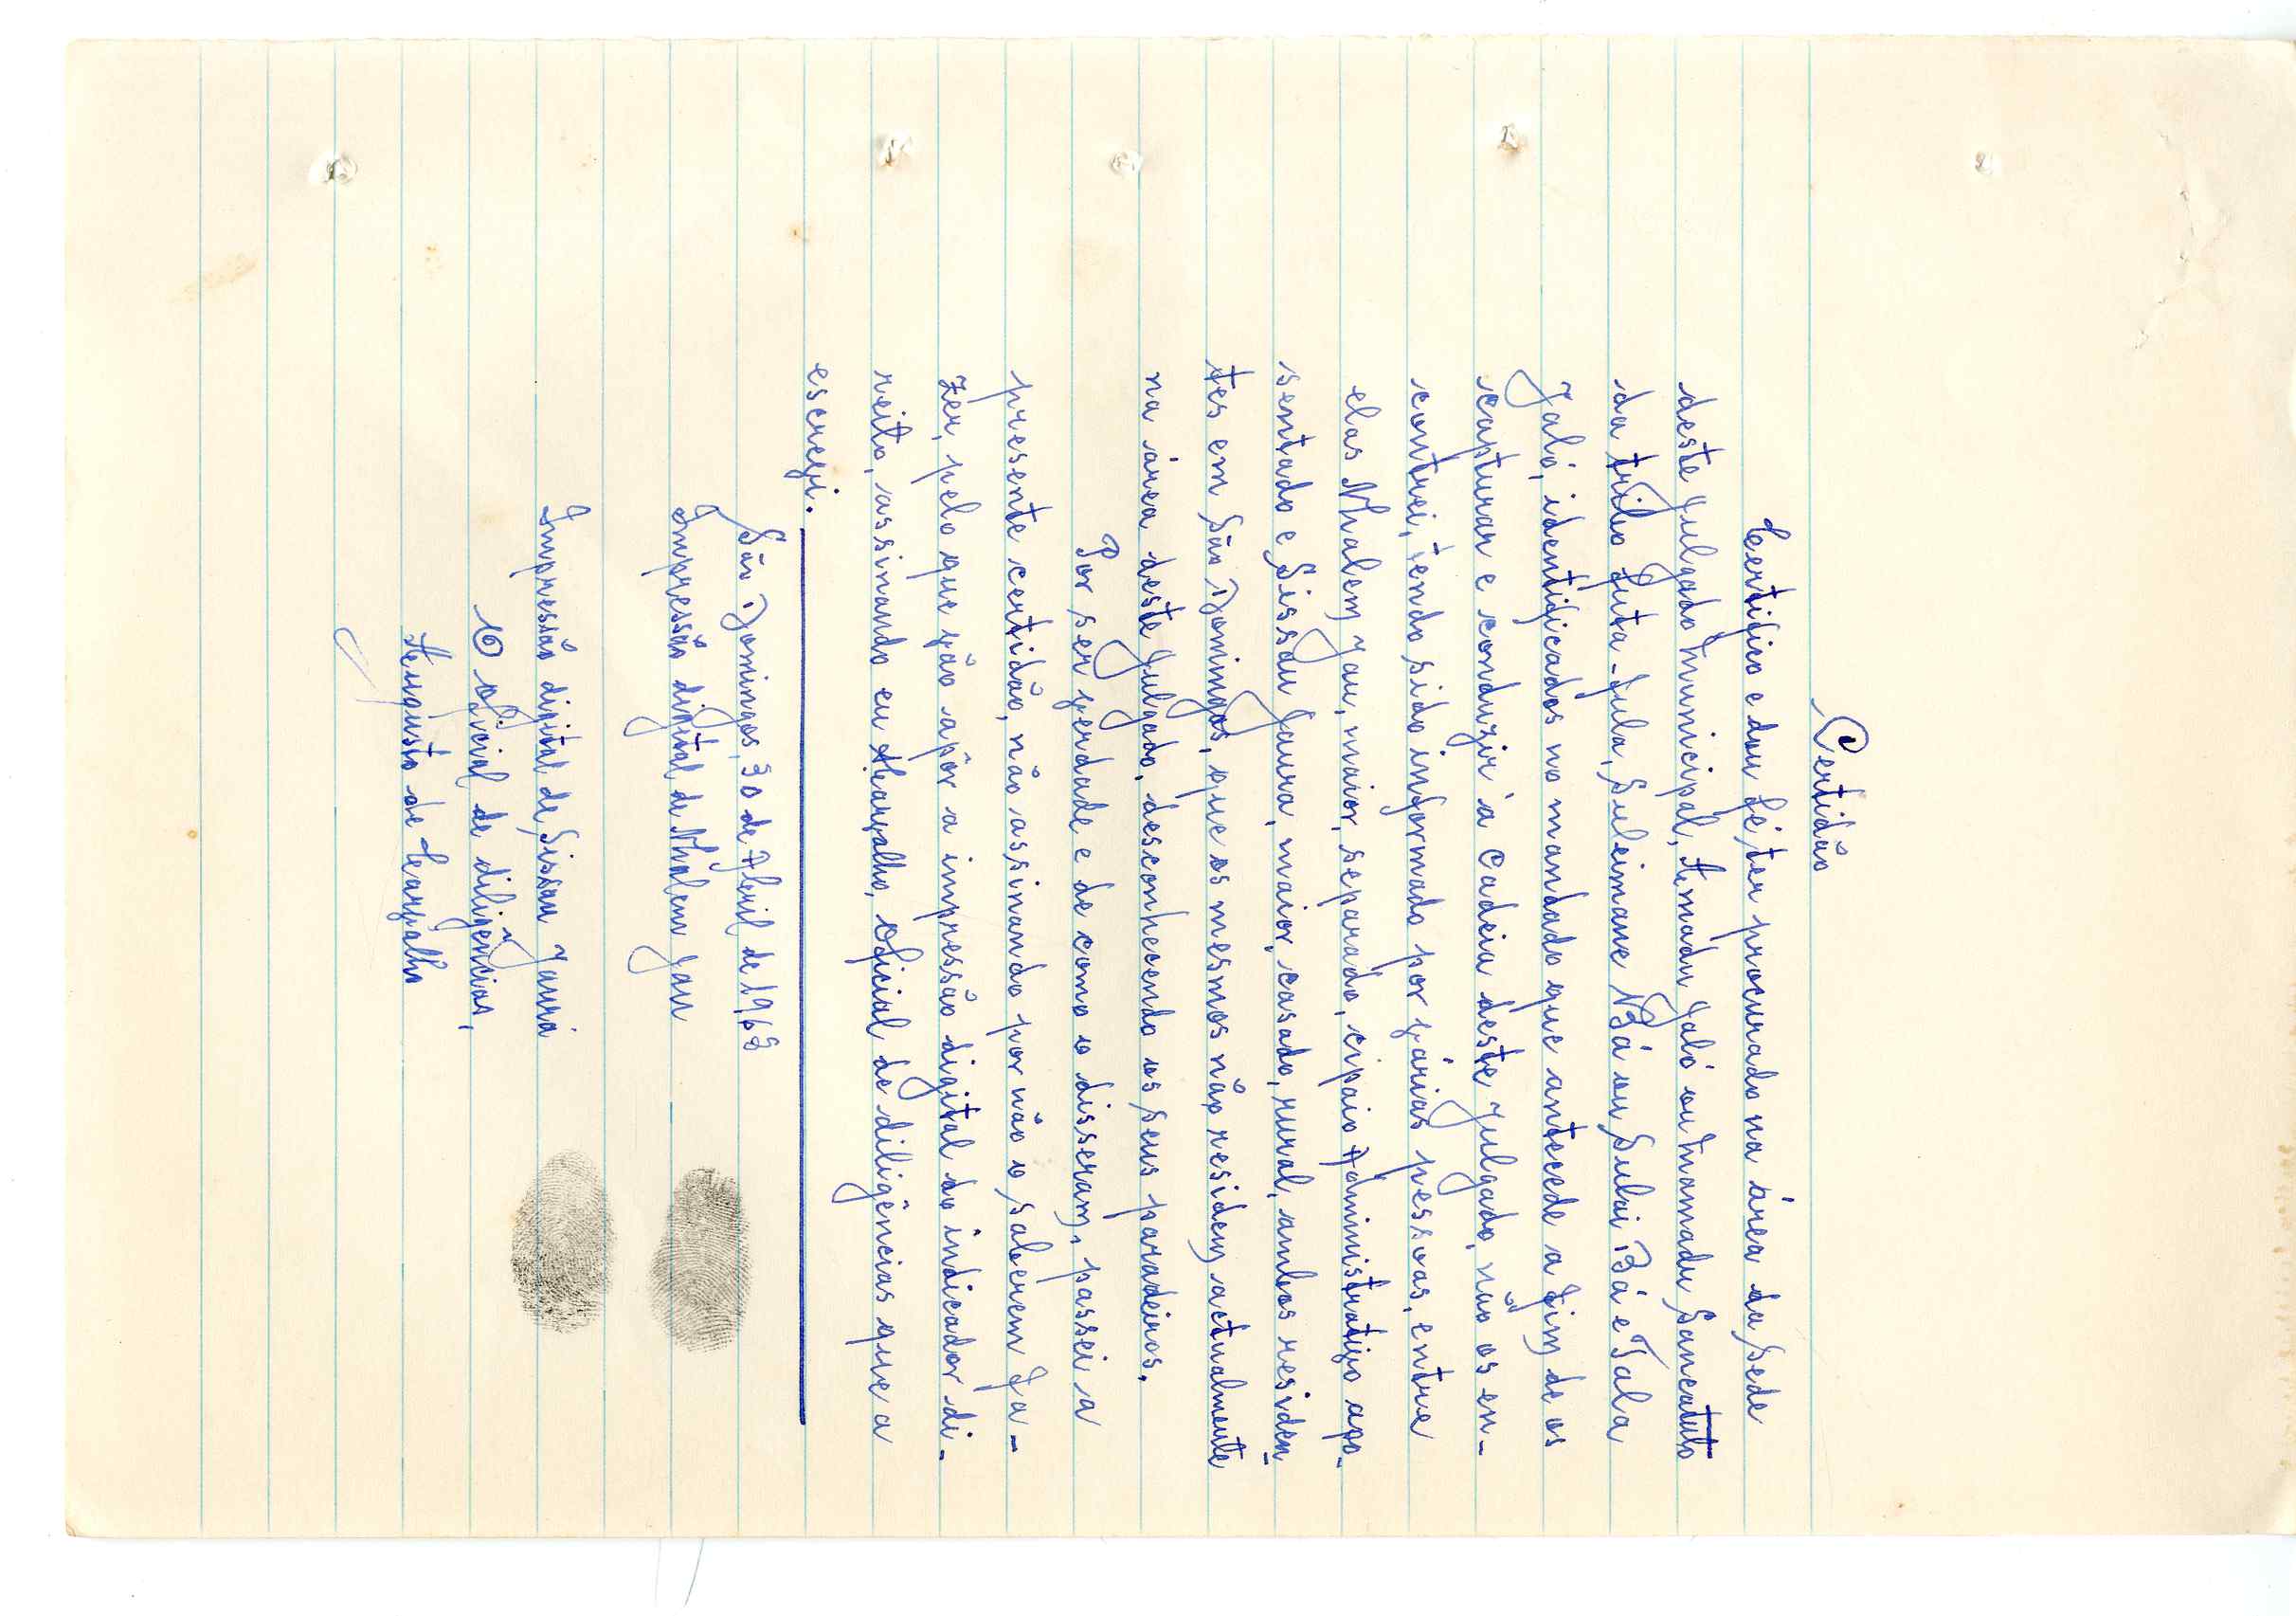 Certidão
Certifico e dou fé, ter procurado na área da Sede
deste Julgado Municipal, Amadu Jaló ou Mamadu Sancatulo
da tribo Futa-Fula, Suleimane Bá ou Sulai Bá e Tala
Jaló, identificados no mandado que antecede a fim de os
capturar e conduzir à Cadeia deste Julgado, não os en-
contrei, tendo sido informado por várias pessoas, entre
elas Nhalem Jau, maior, separado, cipaio Administrativo apo-
sentado e Sissau Jaura, maior, casado, rural, ambos residen-
tes em São Domingos, que os mesmos não residem actualmente
na área deste Julgado, desconhecendo os seus paradeiros.
Por ser verdade e de como o disseram, passei a
presente certidão, não assinando por não o saberem fa-
zer, pelo que vão apôr a impressão digital do indicador di-
reito, assinando eu Carvalho, Oficial de diligências que a
escrevi.
São Domingos, 30 de Abril de 1968
Impressão digital de Nhalem Jau
Impressão digital de Sissau Jaura
O Oficial de diligências,
Augusto de Carvalho